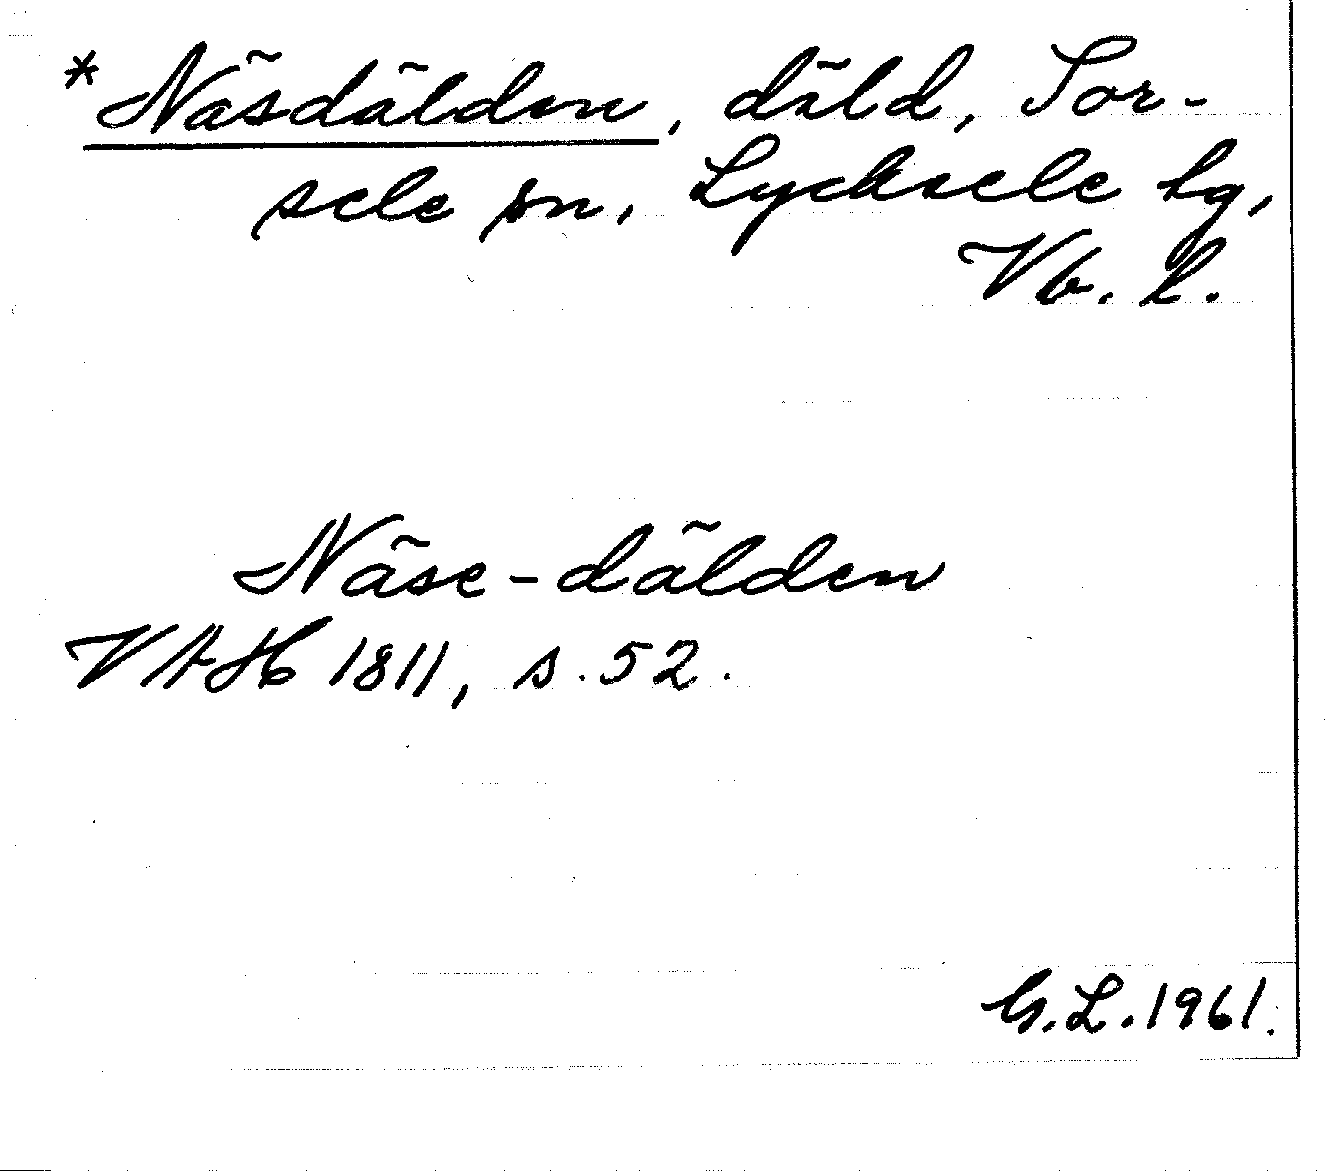 *Näsdälden, däld, Sor-
sele sn, Lycksele lg,
Vb. l.
Näse-dälden
VAH 1811, s. 52.
G.L. 1961.